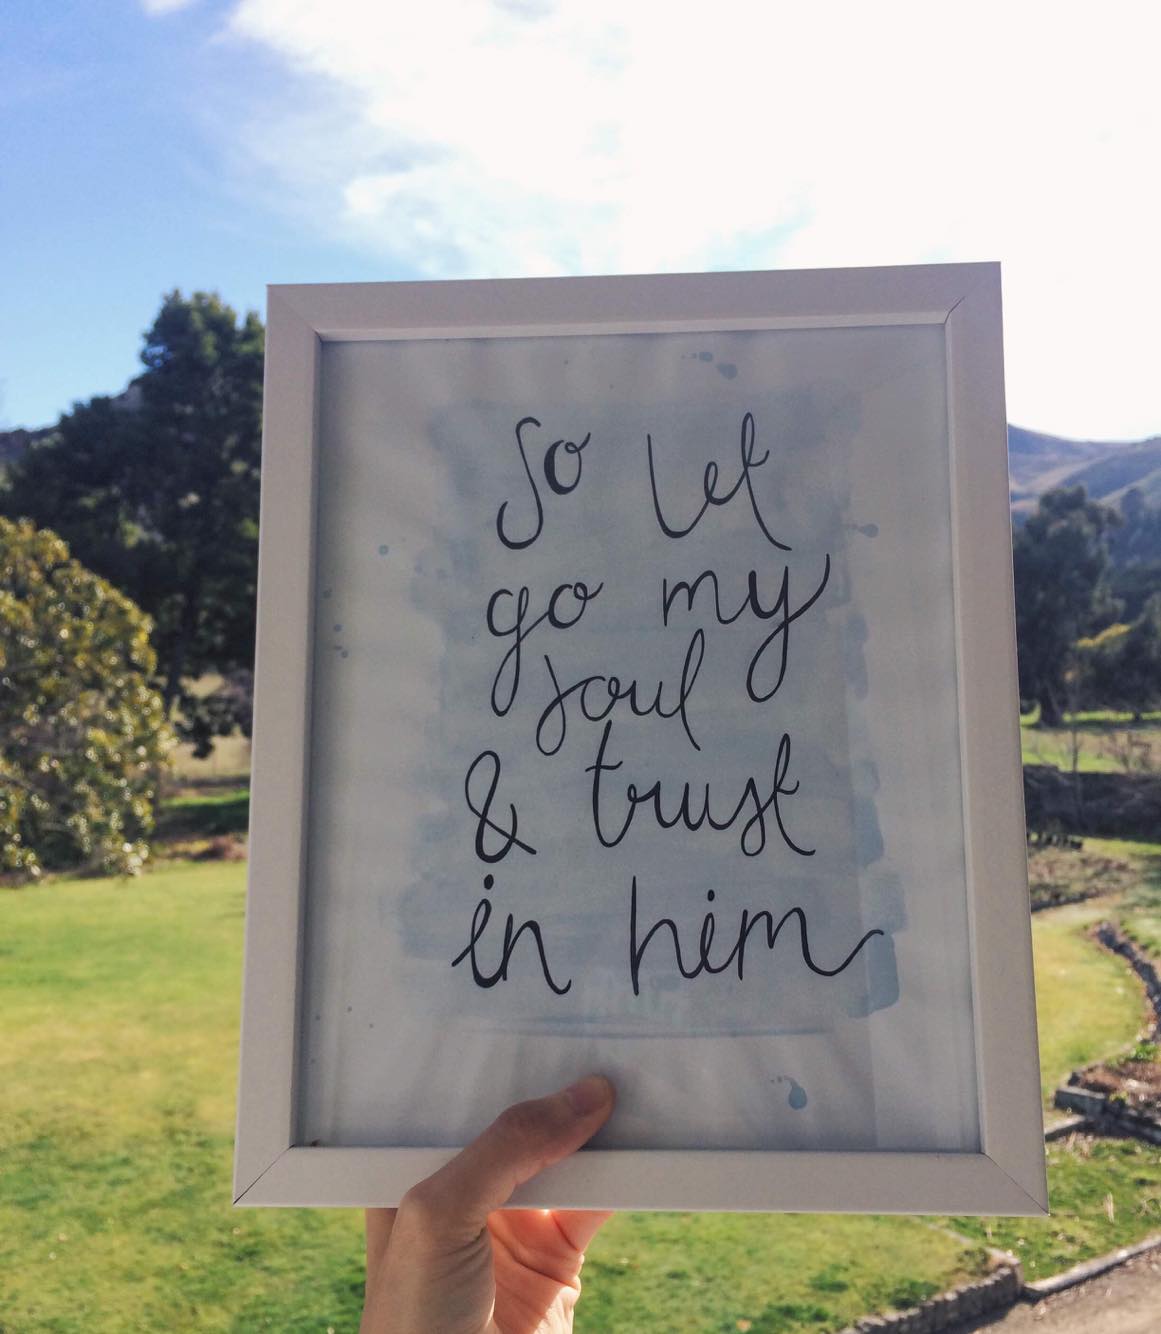 So let
go my
soul
& trust
in him